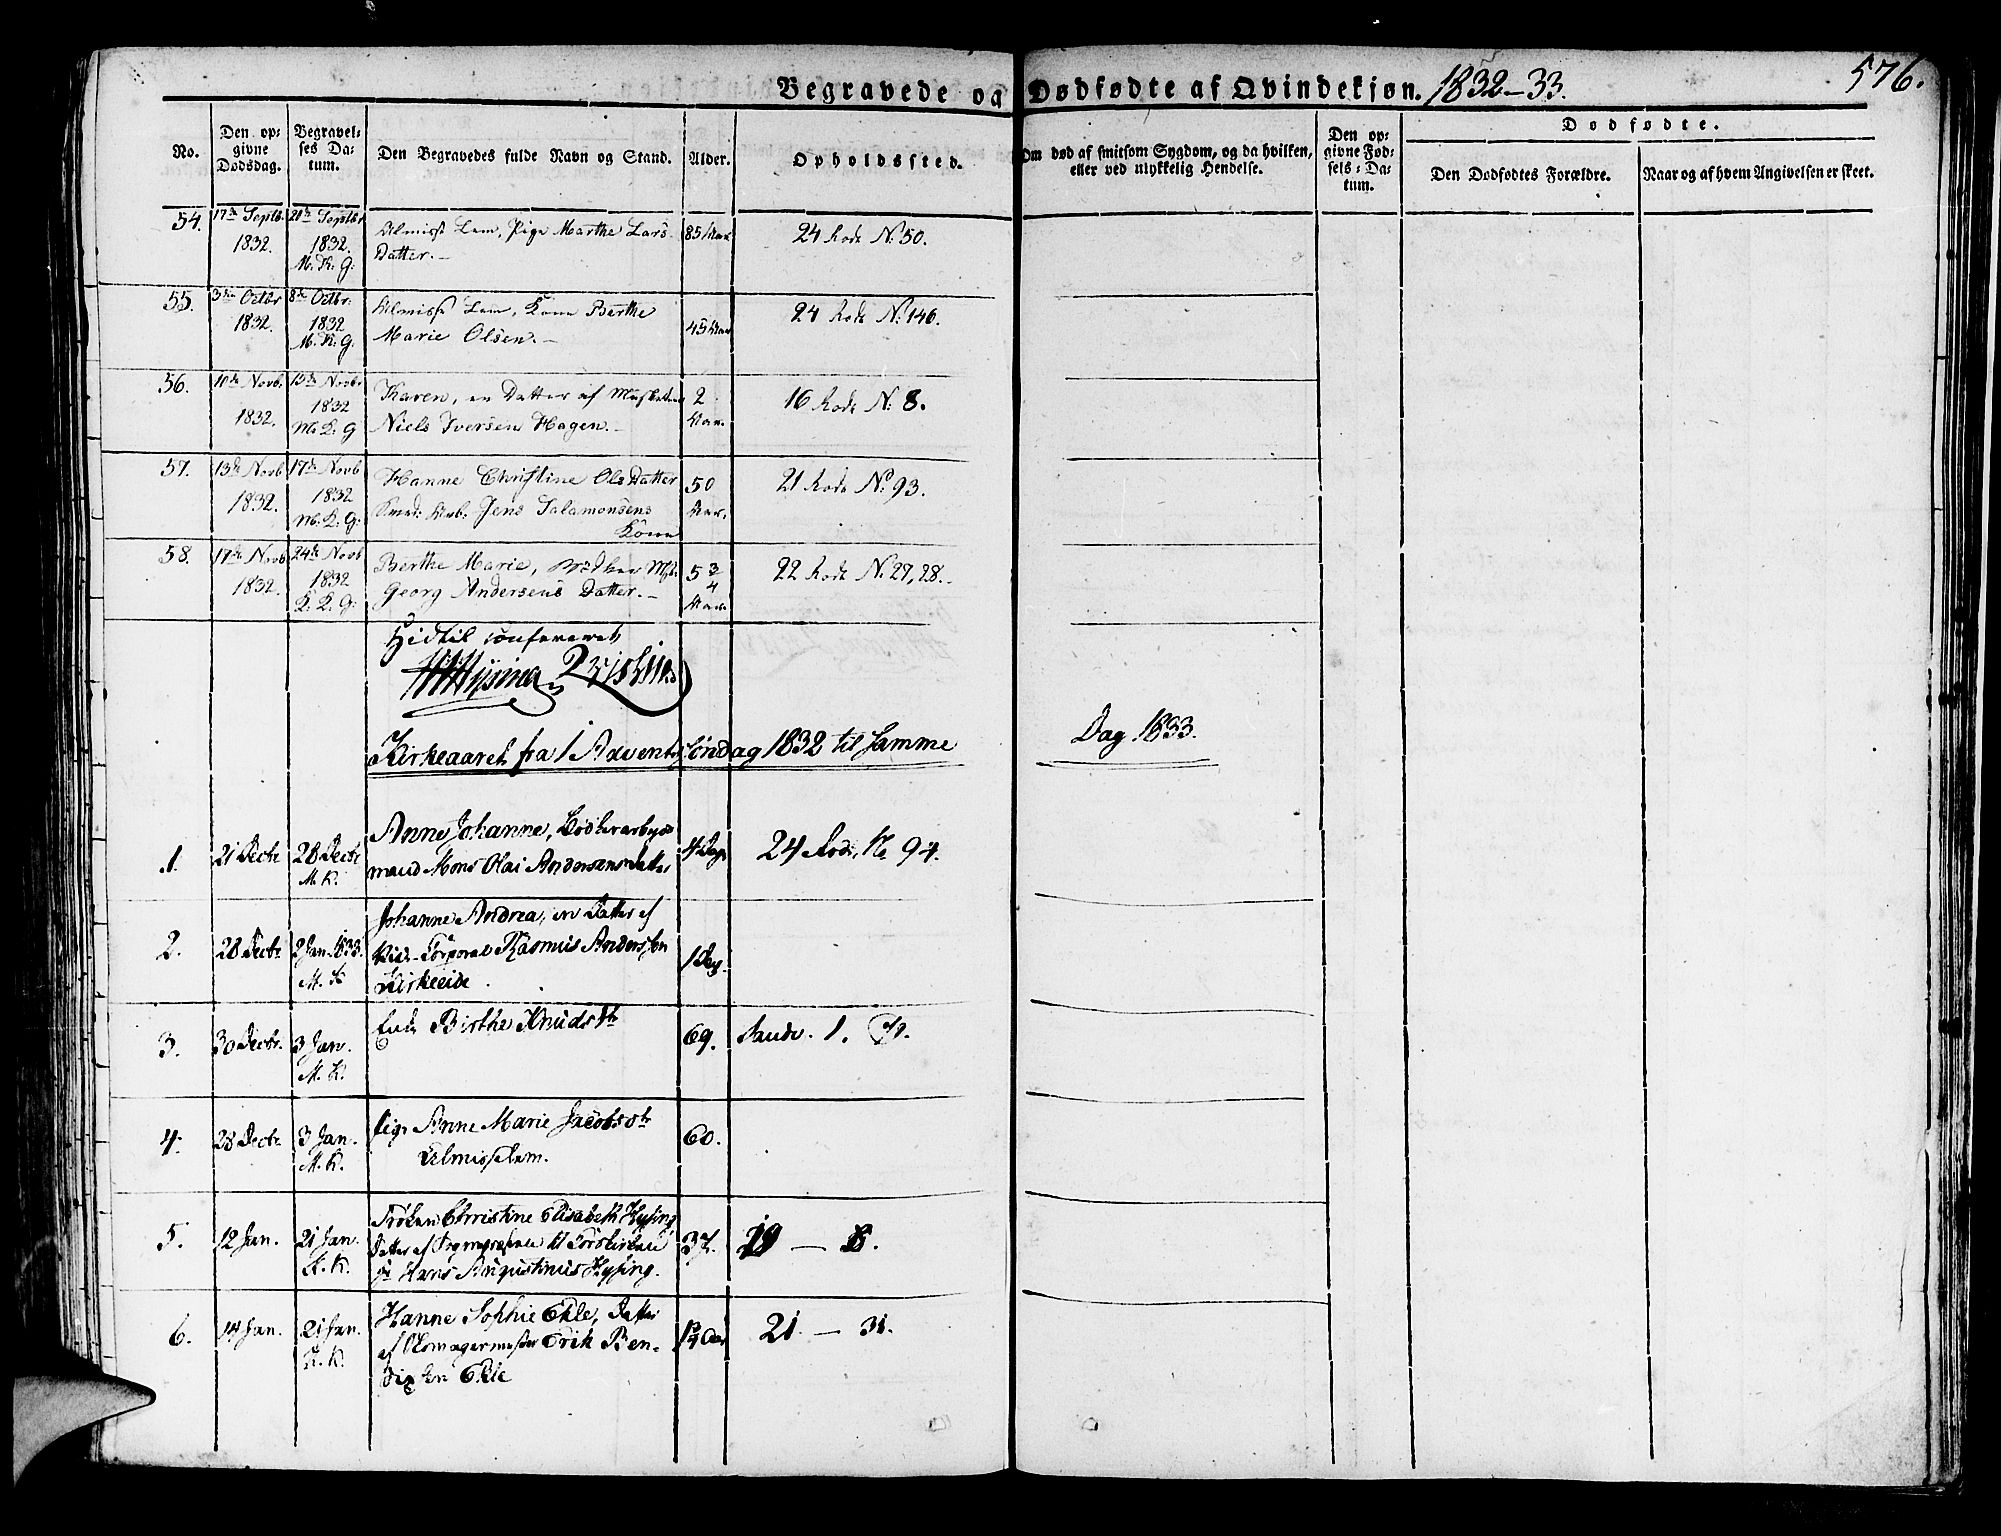 Begravede og Dødfødte af Qvindekjøn. 1832–33.
576.
No.
Den op-
givne
Dødsdag.
Begravel-
ses Da-
tum.
Den Begravedes fulde Navn og Stand.
Alder.
Opholdssted.
Om død af smitsom Sygdom, og da hvilken,
eller ved ulykkelig Hendelse.
Den op-
givne Fød-
sels-Da-
tum.
Dødfødte.
Den Dødfødtes Forældre.
Naar og af hvem Angivelsen er skeet.
54. 17de Septb. 1832. 21de Septbr 1832. M. K. G.
Almisse Lem, Pige Marthe Lars
Datter.–
85 Aar 24 Rode No. 50.
55. 3die Octbr 1832. 8de Octbr: 1832 M. K. G.
Almisse Lem, Kone Berthe
Marie Olsen.–
45 Aar 24 Rode No. 146.
56. 10de Novb. 1832. 15de Novbr. 1832 M. K. G
Karen, en Datter af Musketeer
Niels Iversen Hagen.–
2 Aar. 16 Rode No. 8.
57. 13de Novb 1832. 17de Novb 1832 M. K. G.
Hanne Christine Ols Datter
Jens Salamonsens
Kone
50 Aar. 21 Rode No. 93.
58. 17de Novb 1832. 24de Novb 1832 K. K. G.
Berthe Marie, Bødker
Georg Andersens Datter.–
5 3/4 Aar 22 Rode No. 27, 28.–
Hidtil confereret
Kirkeaaret fra 1 Advents Søndag 1832 til samme Dag 1833.
1. 21 Decbr 28 Decbr M. K.
Anne Johanne, Bødkerarbeids
mand Mons Olai Andersens Datter
4 Dage 24 Rode, No 94.
2. 28 Decbr 2 Jan. 1833. M. K
Johanne Andrea, en Datter af
Corporal Rasmus Anderssen
Kirkeeide.
1 Dag.
3. 30 Decbr. 3 Jan. M. K.
Enke Birthe Knudsdtr
69. Sandv. 1.
4. 28 Decbr 3 Jan. M. K.
Pige Anne Marie Jacobsdtr
Almisselem.
60.
5. 12 Jan. 21 Jan. K. K.
Frøken Christine Elisabeth Hysing
Datter af Sognepræsten til Korskirken
Hr Hans Augustinus Hysing.
37. 19 — 8.
6. 14 Jan. 21 Jan. K. K.
Hanne Sophie Ekle, Datter
af Skomagermester Erik Ben-
dixsen Ekle
21. — 31.